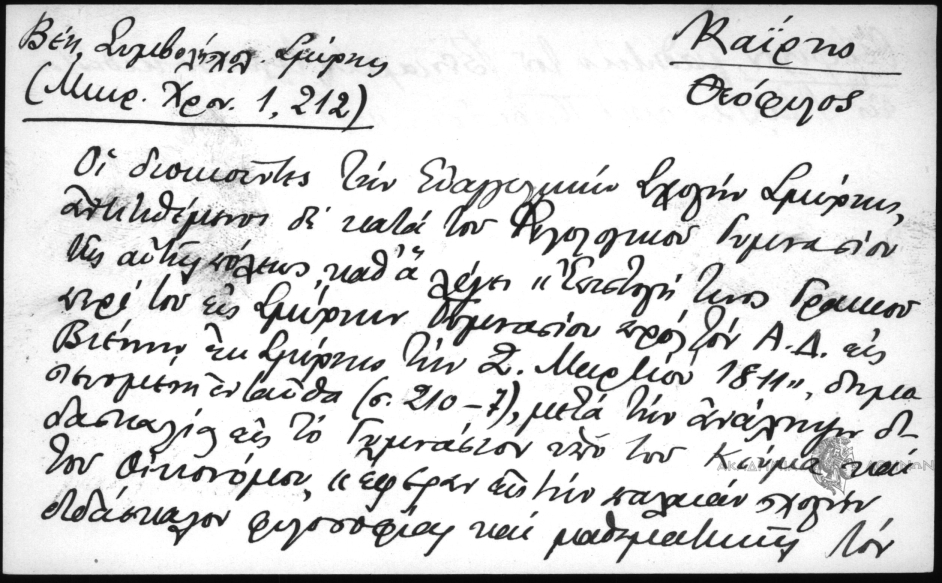 Βέη, Συμβολή σχολ. Σμύρνης
(Μικρ. Χρον. 1, 212)
Καΐρης
Θεόφιλος
Οἱ διοικοῦντες τὴν Εὐαγγελικὴν Σχολὴν Σμύρνης,
ἀντιτιθέμενοι δὲ κατὰ τοῦ Φιλολογικοῦ Γυμνασίου
τῆς αὐτῆς πόλεως, καθ' ἃ λέγει «Ἐπιστολή τινος Γραικοῦ
περὶ τοῦ εἰς Σμύρνην Γυμνασίου πρὸς τὸν Α.Δ. εἰς
Βιέννην, ἐκ Σμύρνης τὴν 2. Μαρτίου 1811», δημο
σιευομένη ἐνταῦθα (σ. 210-7), μετὰ τὴν ἀνάληψιν δι-
δασκαλίας εἰς τὸ Γυμνάσιον ὑπὸ τοῦ Κούμα καὶ
τοῦ Οἰκονόμου, «ἔφεραν εἰς τὴν παλαιὰν σχολὴν
διδάσκαλον φιλοσοφίας καὶ μαθηματικῆς τὸν